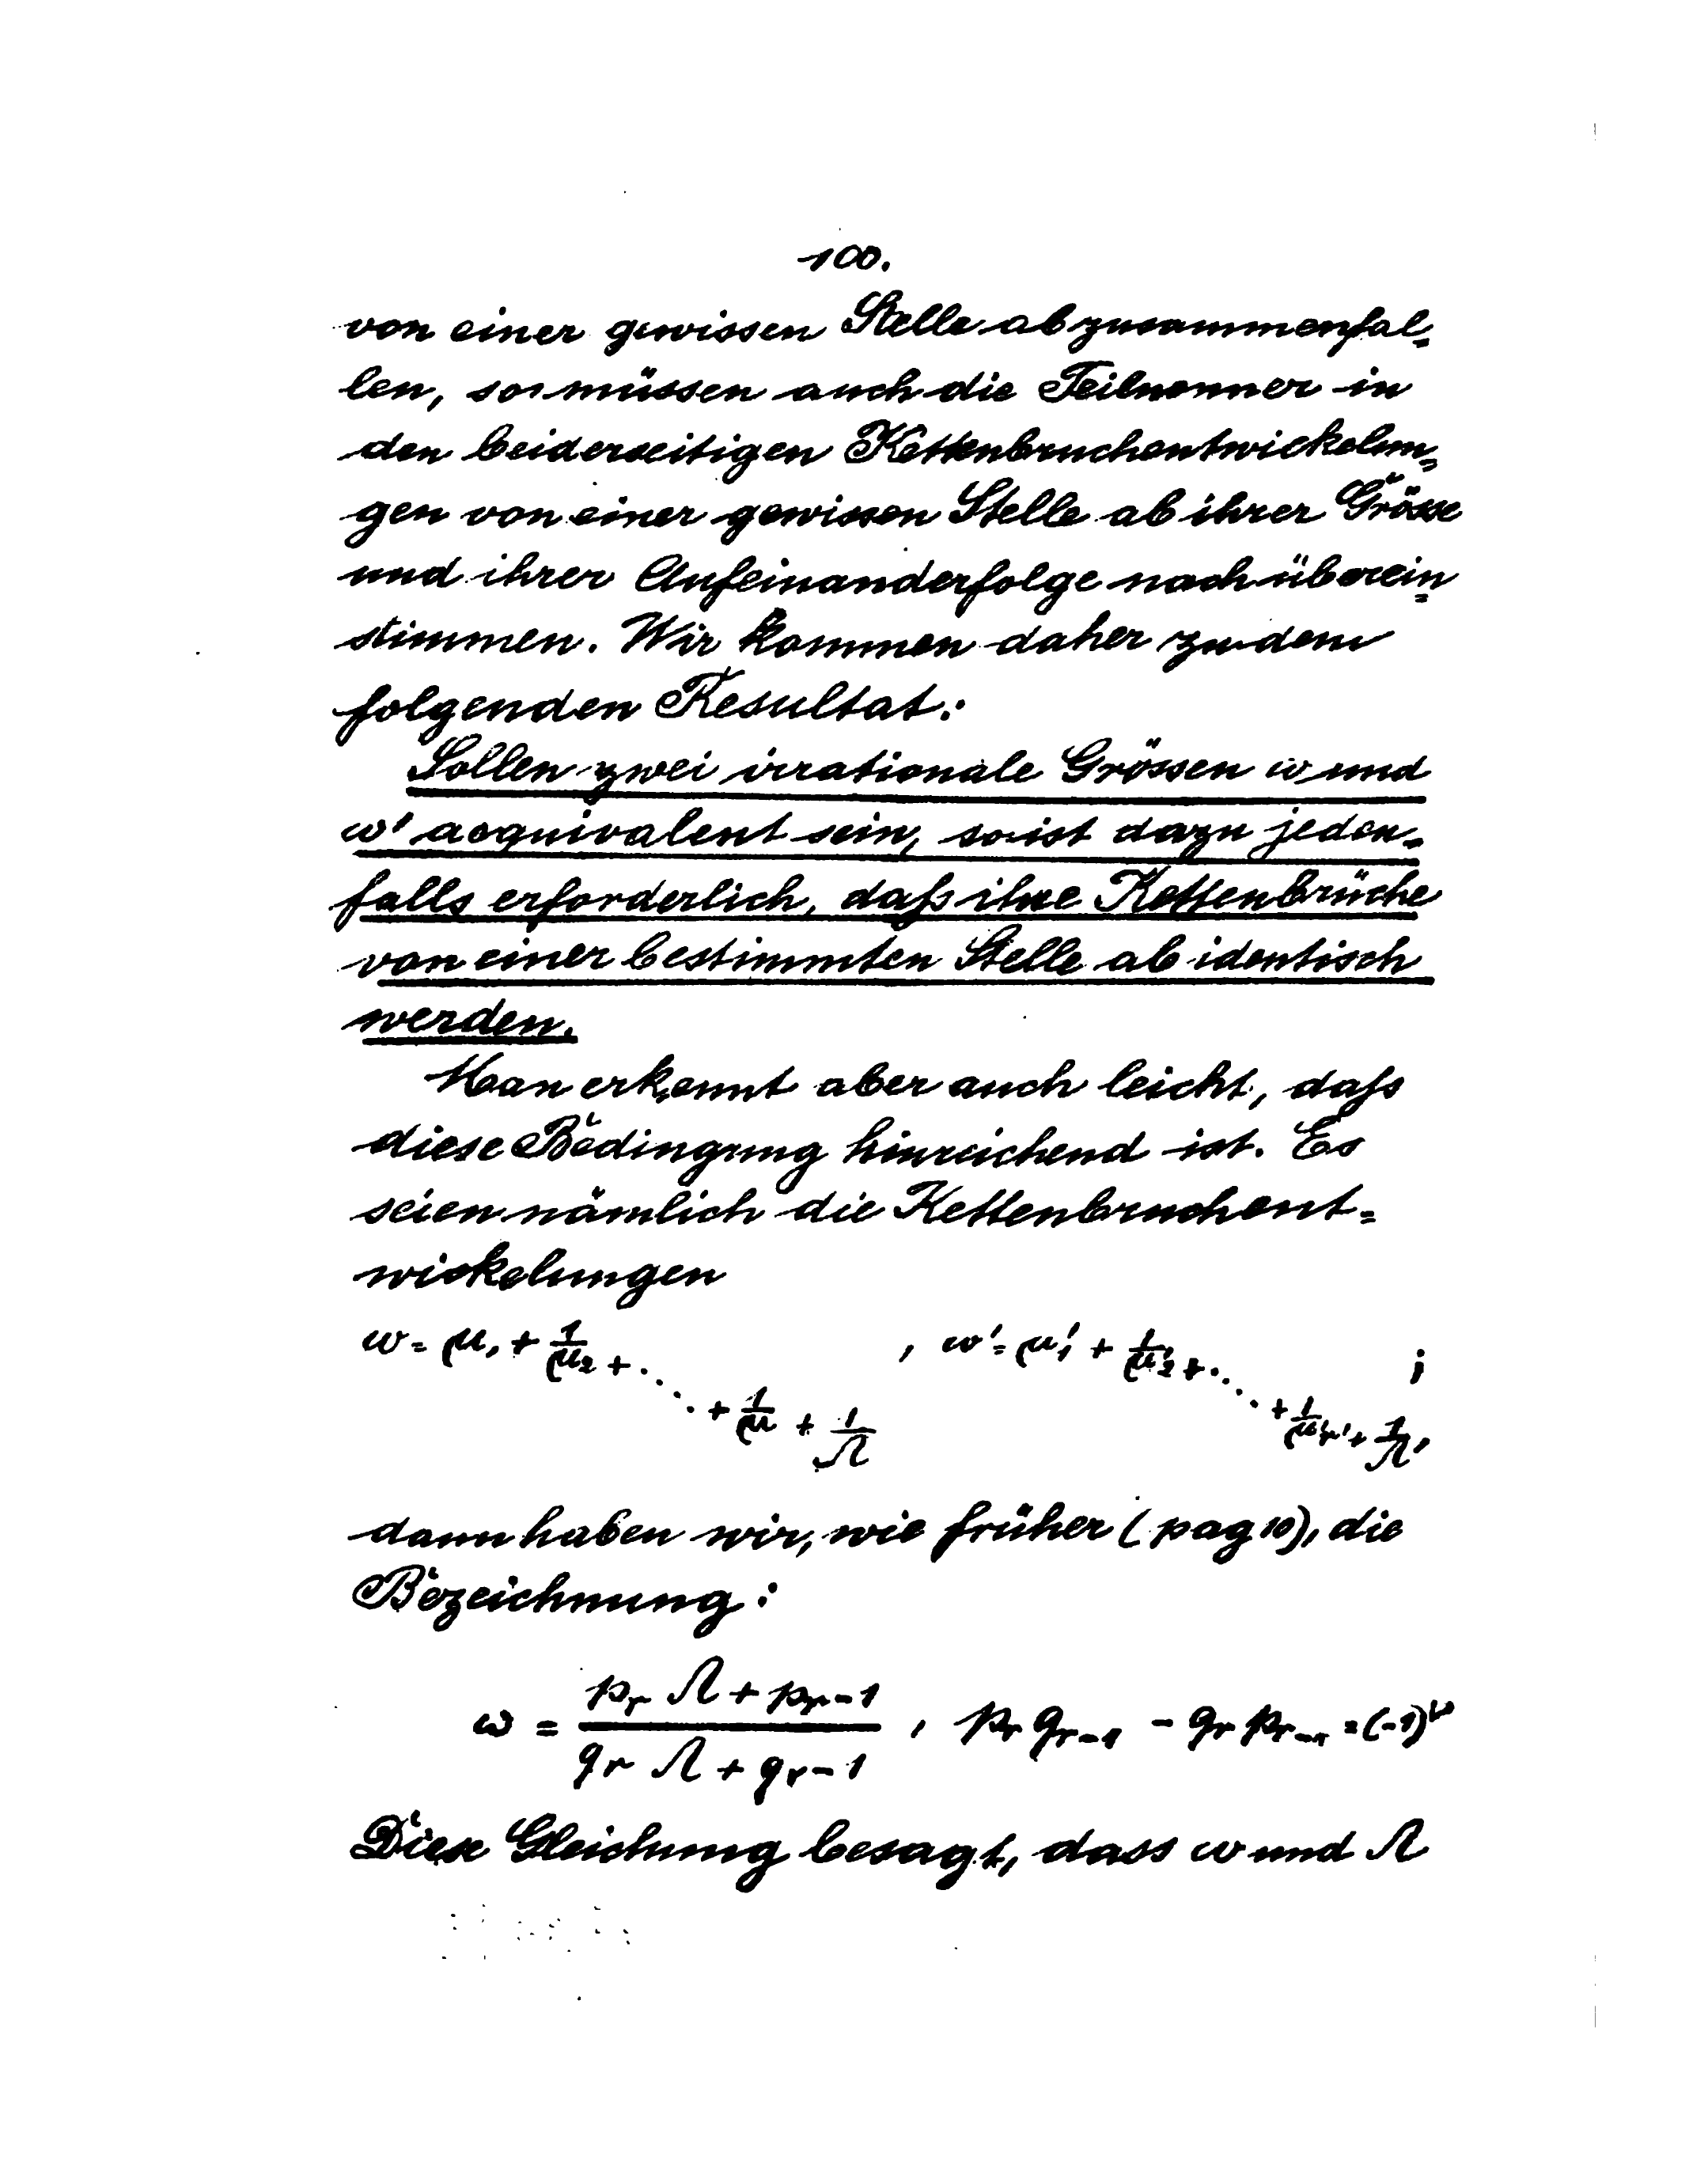 100.
von einer gewissen Stelle ab zusammenfal-
len, so müssen auch die Teilnenner in
den beiderseitigen Kettenbruchentwickelun-
gen von einer gewissen Stelle ab ihrer Grösse
und ihrer Aufeinanderfolge nach überein-
stimmen. Wir kommen daher zu dem
folgenden Resultat:
Sollen zwei irrationale Grössen ω und
ω' aequivalent sein, so ist dazu jeden-
falls erforderlich, daß ihre Kettenbrüche
von einer bestimmten Stelle ab identisch
werden.
Man erkennt aber auch leicht, daß
diese Bedingung hinreichend ist. Es
seien nämlich die Kettenbruchent-
wickelungen
ω = μ₁ + 1/μ₂ + ... + 1/μ + 1/Ω , ω' = μ'₁ + 1/μ'₂ + ... + 1/μ'r' + 1/Ω, ;
dann haben wir, wie früher (pag 10), die
Bezeichnung:
ω = (pr Ω + pr-1)/(qr Ω + qr-1) , pr qr-1 - qr pr-1 = (-1)^r
Diese Gleichung besagt, dass ω und Ω